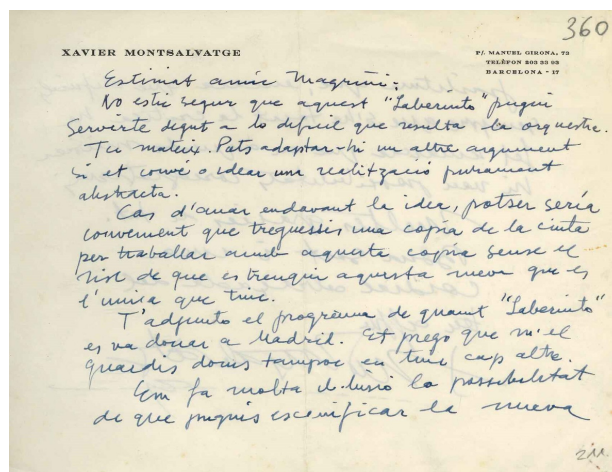 360
XAVIER MONTSALVATGE
P/. MANUEL GIRONA, 73
TELÈFON 203 33 93
BARCELONA - 17
Estimat amic Magriñi:
No estic segur que aquest "Laberinto" pugui
servirte degut a lo dificil que resulta la orquestra.
Tu mateix. Pots adaptar-hi un altre argument
si et convé o idear una realització purament
abstracta.
Cas d'anar endavant la idea, potser seria
convenient que treguessis una copia de la cinta
per traballar amb aquesta copia sense el
risc de que es trenqui aquesta meva que es
l'unica que tinc.
T'adjunto el programa de quant "Laberinto"
es va donar a Madrid. Et prego que m'el
guardis doncs tampoc en tinc cap altre.
Em fa molta il·lusió la possibilitat
de que puguis escenificar la meva